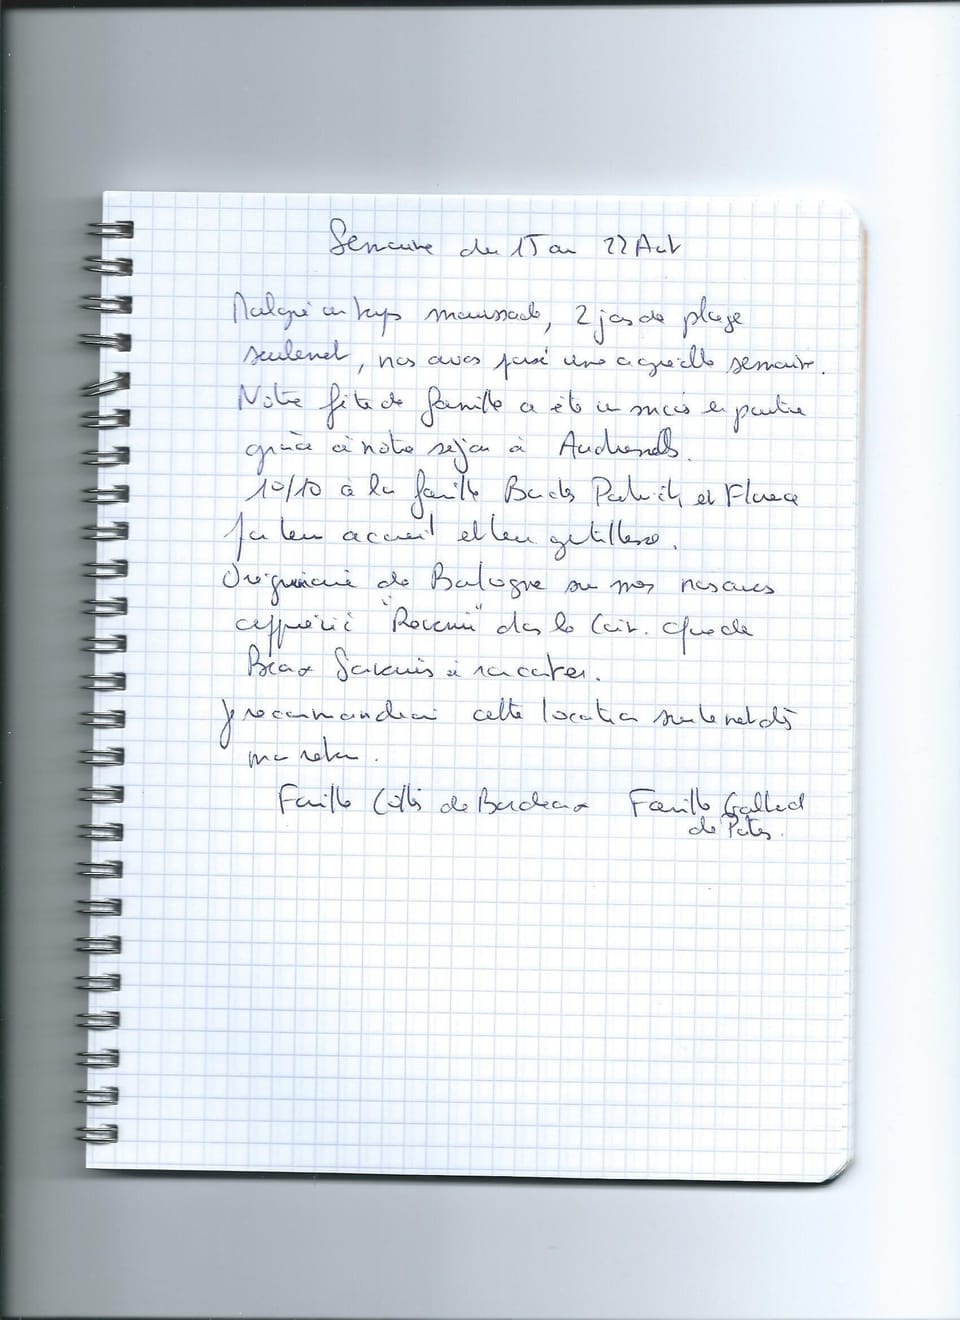 Semaine du 15 au 22 Août
Malgré un temps maussade, 2 jours de plage
seulement, nous avons passé une agréable semaine.
Notre fête de famille a été un succès en partie
grâce à notre séjour à Audresselles.
10/10 à la famille Patrick et Florence
Pour leur accueil et leur gentillesse.
Originaire de Boulogne sur mer nous avons
apprécié "Revenir" dans le Coin. Que de
Beaux Souvenirs à raconter.
Je recommanderai cette location sur le net dès
mon retour.
Famille de Bordeaux Famille
de